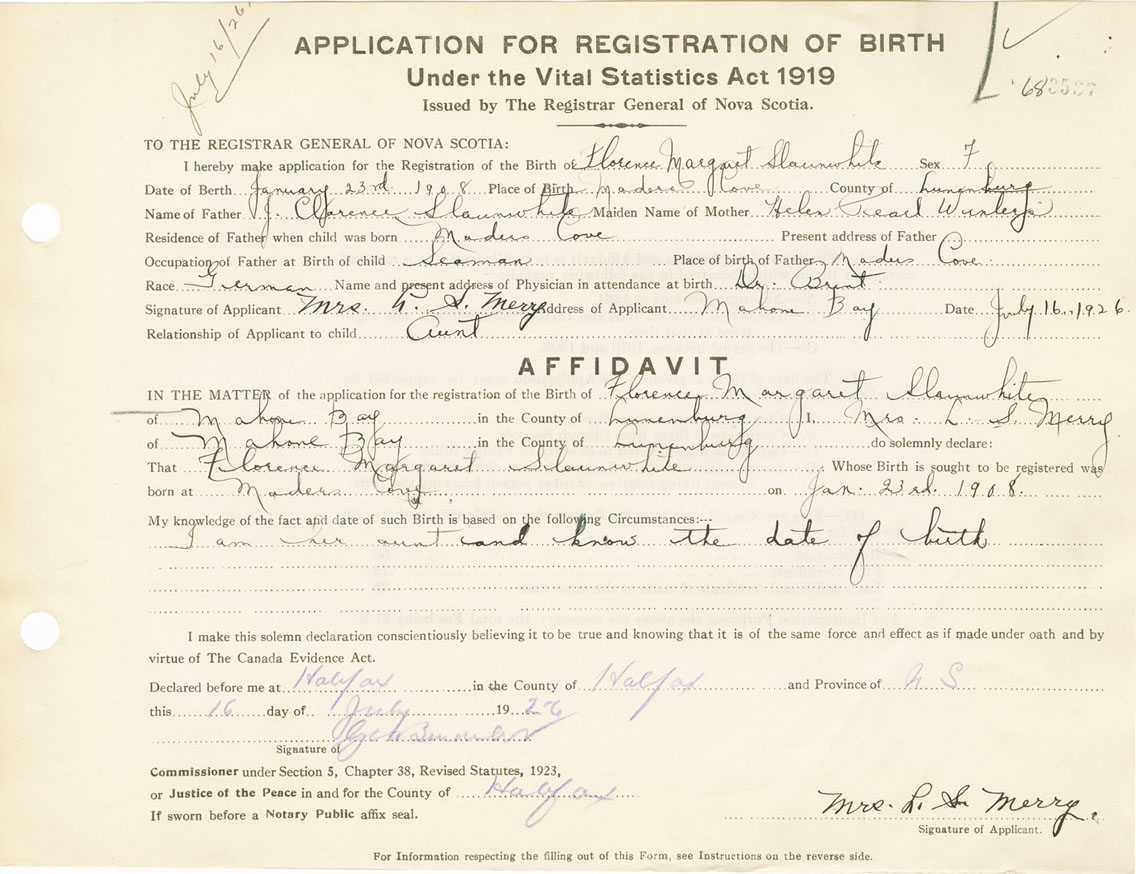 July 16/26.
APPLICATION FOR REGISTRATION OF BIRTH
Under the Vital Statistics Act 1919
Issued by The Registrar General of Nova Scotia.
TO THE REGISTRAR GENERAL OF NOVA SCOTIA:
I hereby make application for the Registration of the Birth of Florence Margaret Slaunwhite Sex F
Date of Berth January 23rd 1908 Place of Birth Maders Cove County of Lunenburg
Name of Father J. Clarence Slaunwhite Maiden Name of Mother Helen Pearl
Residence of Father when child was born Maders Cove Present address of Father
Occupation of Father at Birth of child Seaman Place of birth of Father Maders Cove
Race German Name and present address of Physician in attendance at birth Dr.
Signature of Applicant Mrs. L. S. Merry Address of Applicant Mahone Bay Date July 16, 1926.
Relationship of Applicant to child Aunt
AFFIDAVIT
IN THE MATTER of the application for the registration of the Birth of Florence Margaret Slaunwhite
of Mahone Bay in the County of Lunenburg I, Mrs. L. S. Merry
of Mahone Bay in the County of Lunenburg do solemnly declare:
That Florence Margaret Slaunwhite Whose Birth is sought to be registered was
born at Maders Cove on Jan. 23rd. 1908.
My knowledge of the fact and date of such Birth is based on the following Circumstances:---
I am her aunt and know the date of birth
I make this solemn declaration conscientiously believing it to be true and knowing that it is of the same force and effect as if made under oath and by
virtue of The Canada Evidence Act.
Declared before me at Halifax in the County of Halifax and Province of N S
this 16 day of July 19 26
Signature of
Commissioner under Section 5, Chapter 38, Revised Statutes, 1923,
or Justice of the Peace in and for the County of Halifax
If sworn before a Notary Public affix seal.
Mrs. L. S. Merry.
Signature of Applicant.
For Information respecting the filling out of this Form, see Instructions on the reverse side.